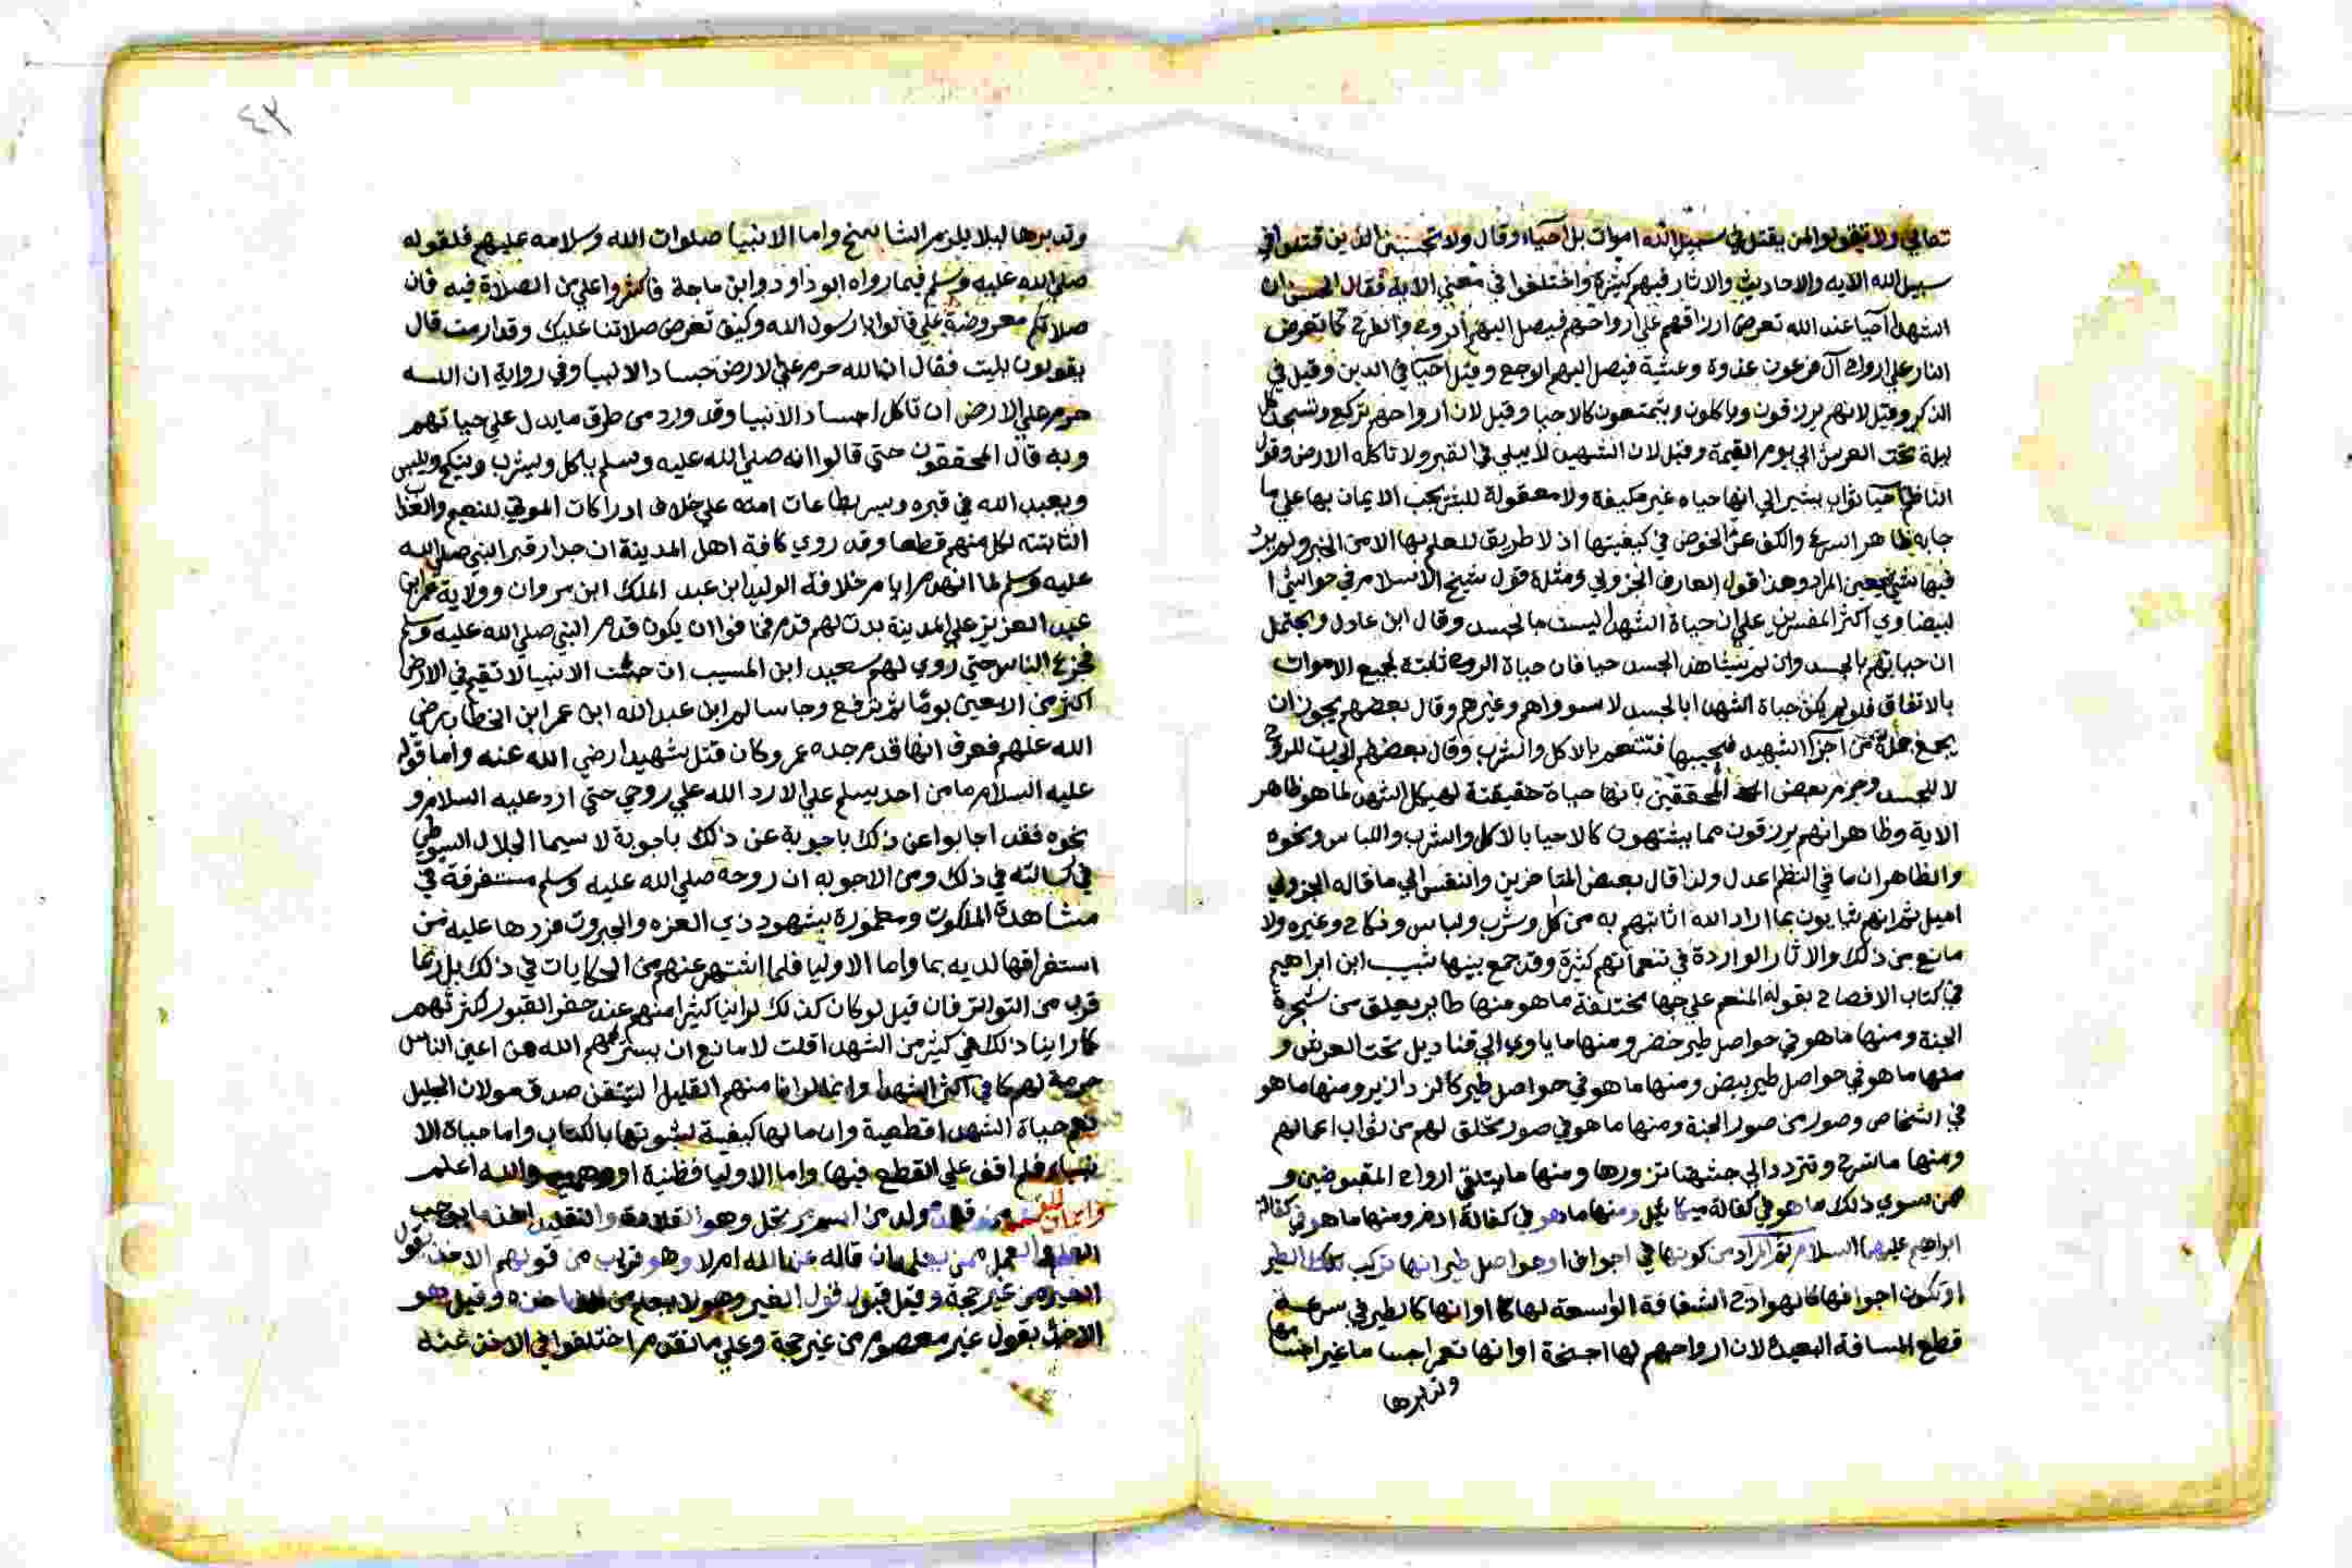 تعالي ولا تقولوا لمن يقتل في سبيل الله اموات بل أحياء وقال ولا تحسبن الذين قتلوا في
سبيل الله الآيه والاحاديث والاثار فيهم كثيرة واختلفوا في معني الاية فقال الحسن ان
الشهدا أحيا عند الله تعرض ارزاقهم علي ارواحهم فيصل اليهم الروح والفرح كما تعرض
النار علي ارواح آل فرعون غدوة وعشية فيصل اليهم الوجع وقيل احيا في الدين وقيل في
الذكر وقيل لانهم يرزقون وياكلون ويتمتعون كالاحيا وقيل لان ارواحهم تركع وتسجد كل
ليلة تحت العرش الي يوم القيمة وقيل لان الشهيد لا يبلي في القبر ولا تاكله الارض وقول
الناظم يشير الي انها حياه غير مكيفة ولا معقولة للبشر يجب الايمان بها علي ما
جا به ظاهر الشرع والكف عن الخوض في كيفيتها اذ لا طريق للعلم بها الا من الخبر ولم يرد
فيها شي يعين المراد وهذا قول العارف الجزولي ومثله قول شيخ الاسلام في حواشي ا
لبيضاوي اكثر المفسرين علي ان حياة الشهدا ليست بالجسد وقال ابن عادل ويحتمل
ان حياتهم بالجسد وان لم نشاهد الجسد حيا فان حياة الروح ثابتة لجميع الاموات
بالاتفاق فلو لم يكن حياة الشهدا بالجسد لاستووا هم وغيرهم وقال بعضهم يجوز ان
يجمع جملة من اجزا الشهيد فيحييها فتتنعم بالاكل والشرب وقال بعضهم للروح
لا للجسد وجزم بعض المحققين بانها حياة حقيقية لهيكل الشهدا لما هو ظاهر
الاية وظاهر انهم يرزقون مما يشتهون كالاحيا بالاكل والشرب واللباس ونحوه
والظاهر ان ما في النظم اعدل ولذا قال بعض المتاخرين والنفس الي ما قاله الجزولي
اميل ثم انهم يثابون بما اراد الله اثابتهم به من اكل وشرب ولباس ونكاح وغيره ولا
مانع من ذلك والاثار الواردة في تنعماتهم كثيرة وقد جمع بينها شبيب ابن ابراهيم
في كتاب الافصاح بقوله المنعم علي جهات مختلفة ما هو منها طاير يعلق من شجرة
الجنة ومنها ما هو في حواصل طير خضر ومنها ما ياوي الي قناديل تحت العرش و
منها ما هو في حواصل طير بيض ومنها ما هو في حواصل طير كالزرازير ومنها ما هو
في اشخاص وصور من صور الجنة ومنها ما هو في صور تخلق لهم من ثواب اعمالهم
ومنها ما تسرح وتتردد الي جثتها تزورها ومنها ما يتلقي ارواح المقبوضين و
ممن سوي ذلك ما هو في كفالة ميكائيل ومنها ما هو في كفالة ادم ومنها ما هو في كفالة
ابراهيم عليهما السلام ثم المراد من كونها في اجواف او حواصل طير انها تركب الطير
او تكون اجوافها كالهوادج الشفافة الواسعة لها او انها كالطير في سرعة
قطع المسافة البعيدة لان ارواحهم لها اجنحة او انها تعمر اجساما غير اجسامها
وتدبرها
٤٣
وتدبرها ليلا يلزم التناسخ واما الانبيا صلوات الله وسلامه عليهم فلقوله
صلي الله عليه وسلم فيما رواه ابو داود وابن ماجة فاكثروا علي من الصلاة فيه فان
صلاتكم معروضة علي قالوا يا رسول الله وكيف تعرض صلاتنا عليك وقد ارمت قال
يقولون بليت فقال ان الله حرم علي الارض اجساد الانبيا وفي رواية ان الله
حرم علي الارض ان تاكل اجساد الانبيا وقد ورد من طرق ما يدل علي حياتهم
وبه قال المحققون حتي قالوا انه صلي الله عليه وسلم ياكل ويشرب وينكح ويلبس
ويعبد الله في قبره ويسر بطاعات امته علي خلاف ادراكات الموتي للنعيم والعذاب
الثابتة لكل منهم قطعا وقد روي كافة اهل المدينة ان جدار قبر النبي صلي الله
عليه وسلم لما انهدم ايام خلافة الوليد ابن عبد الملك ابن مروان وولاية عمر ابن
عبد العزيز علي المدينة بدت لهم قدم فخافوا ان يكون قدم النبي صلي الله عليه وسلم
فجزع الناس حتي روي لهم سعيد ابن المسيب ان جثث الانبيا لا تقيم في الارض
اكثر من اربعين يوما ثم ترفع وجا سالم ابن عبد الله ابن عمر ابن الخطاب رضي
الله عنهم فعرف انها قدم جده عمر وكان قتل شهيدا رضي الله عنه واما قوله
عليه السلام ما من احد يسلم علي الا رد الله علي روحي حتي ارد عليه السلام و
نحوه فقد اجابوا عن ذلك باجوبة عن ذلك باجوبة لا سيما الجلال السيوطي
في رسالته في ذلك ومن الاجوبه ان روحه صلي الله عليه وسلم مستغرقة في
مشاهدة الملكوت ومغمورة بشهود ذي العزه والجبروت فردها عليه من
استغراقها لديه بما واما الاوليا فلما اشتهر عنهم من الحكايات في ذلك بل ربما
قرب من التواتر فان قيل لو كان كذلك لراينا كثيرا منهم عند حفر القبور لكثرتهم
كما راينا ذلك في كثير من الشهدا قلت لا مانع ان يسترهم الله عن اعين الناس
حرمة لهم كما في اكثر الشهدا وانما راينا منهم القليل ليتيقن صدق مولانا الجليل
نعم حياة الشهدا قطعية وان ما لها كيفية لثبوتها بالكتاب واما حياة الا
نبياء فلم اقف علي القطع فيها واما الاوليا فظنية او والله اعلم
وايمان وهو القلادة والتقليد اخذ ما
العمل من غير ان قاله عن الله ام لا وهو قريب من قولهم الاخذ بقول
الغير من غير حجة وقيل قبول قول الغير وهو لا يعلم من اين اخذه وقيل هو
الاخذ بقول غير معصوم من غير حجة وعلي ما تقدم اختلفوا في الاخذ عنه